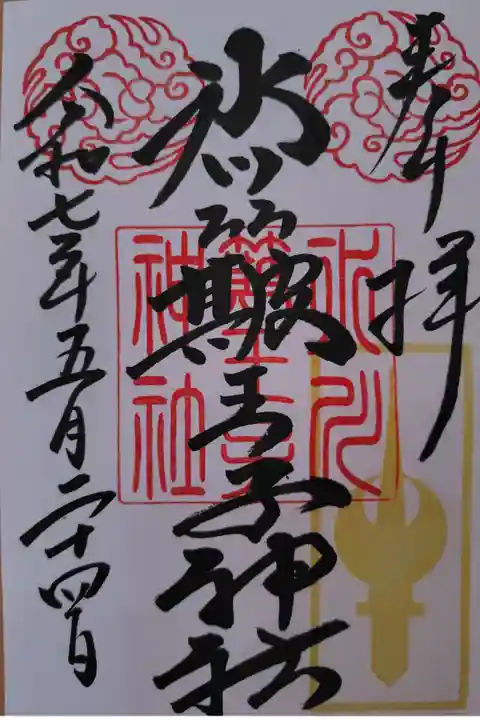 奉拝
氷川簸王子神社
令和七年五月二十四日
氷川
簸王子
神社